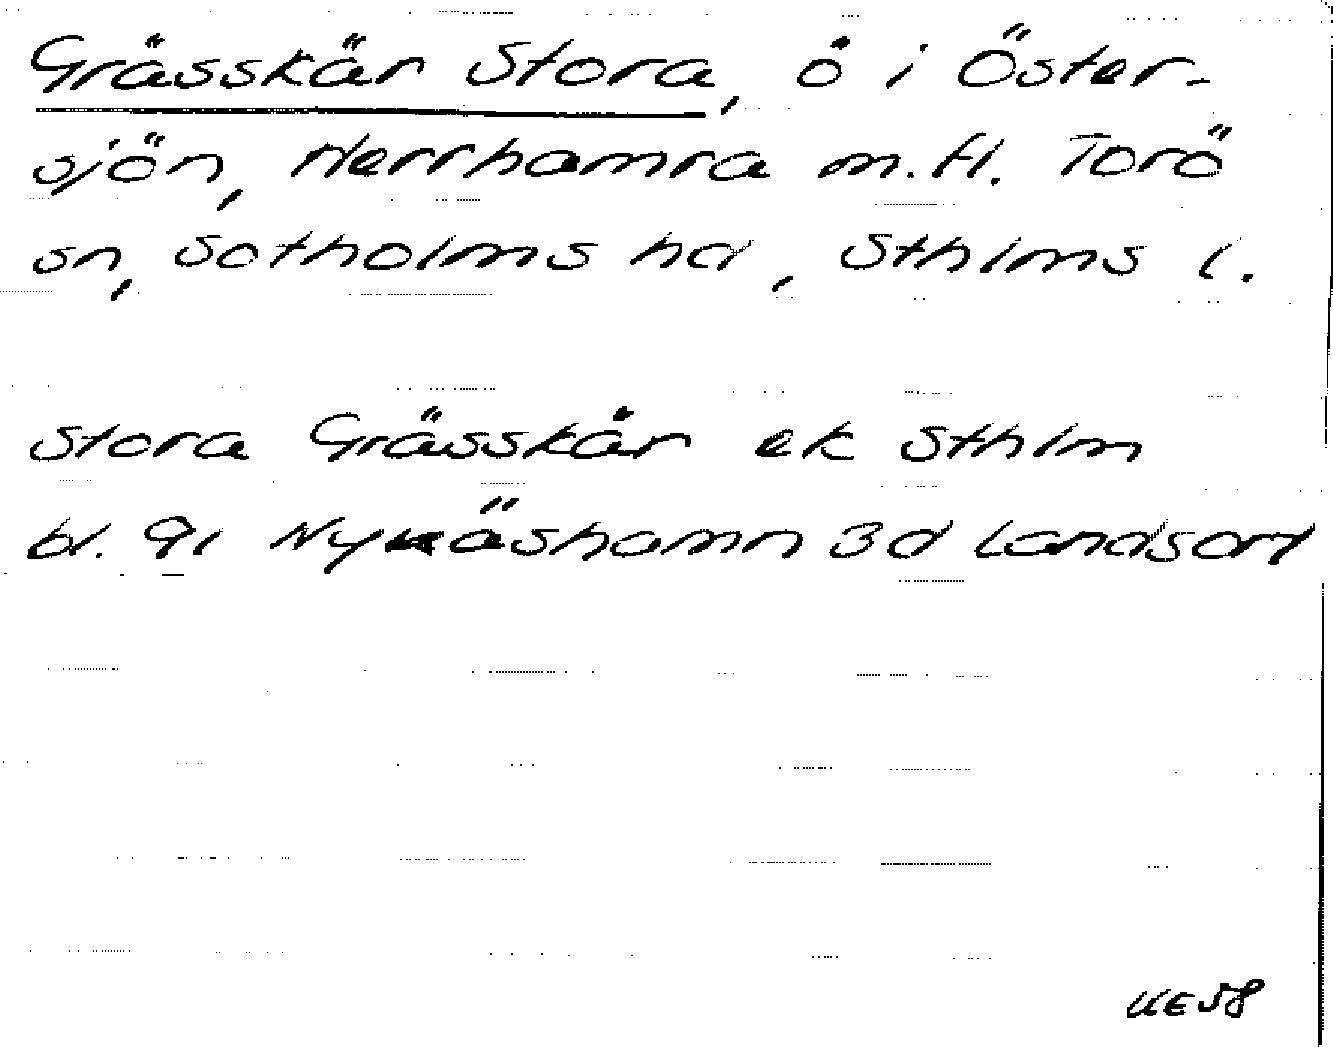 Grässkär Stora, ö i Öster-
sjön, Herrhamra m.fl. Torö
sn, Sotholms hd, Sthlms l.
Stora Grässkär ek Sthlm
bl. 91 Nynäshamn 3d Landsort
UE 58